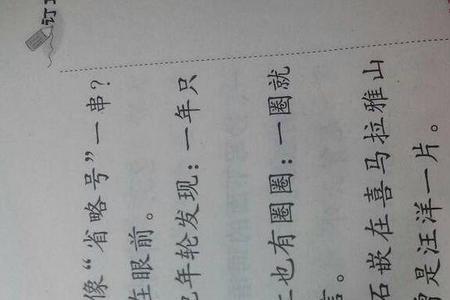 订
像“省略号”一串？
在眼前。
年轮发现：一年只
也有圈圈：一圈就
。
石嵌在喜马拉雅山
是汪洋一片。